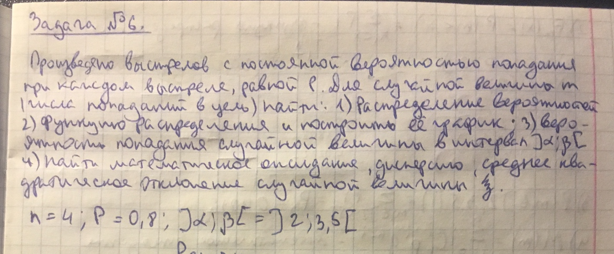 Задача №6.
Произведено выстрелов с постоянной вероятностью попадания
при каждом выстреле, равной P. Для случайной величины m
(числа попаданий в цель) найти: 1) Распределение вероятностей
2) Функцию распределения и построить её график; 3) веро-
ятность попадания случайной величины в интервал ]α;β[
4) Найти математическое ожидание, дисперсию, среднее ква-
дратическое отклонение случайной величины
n=4; P=0,8; ]α;β[=]2;3,5[